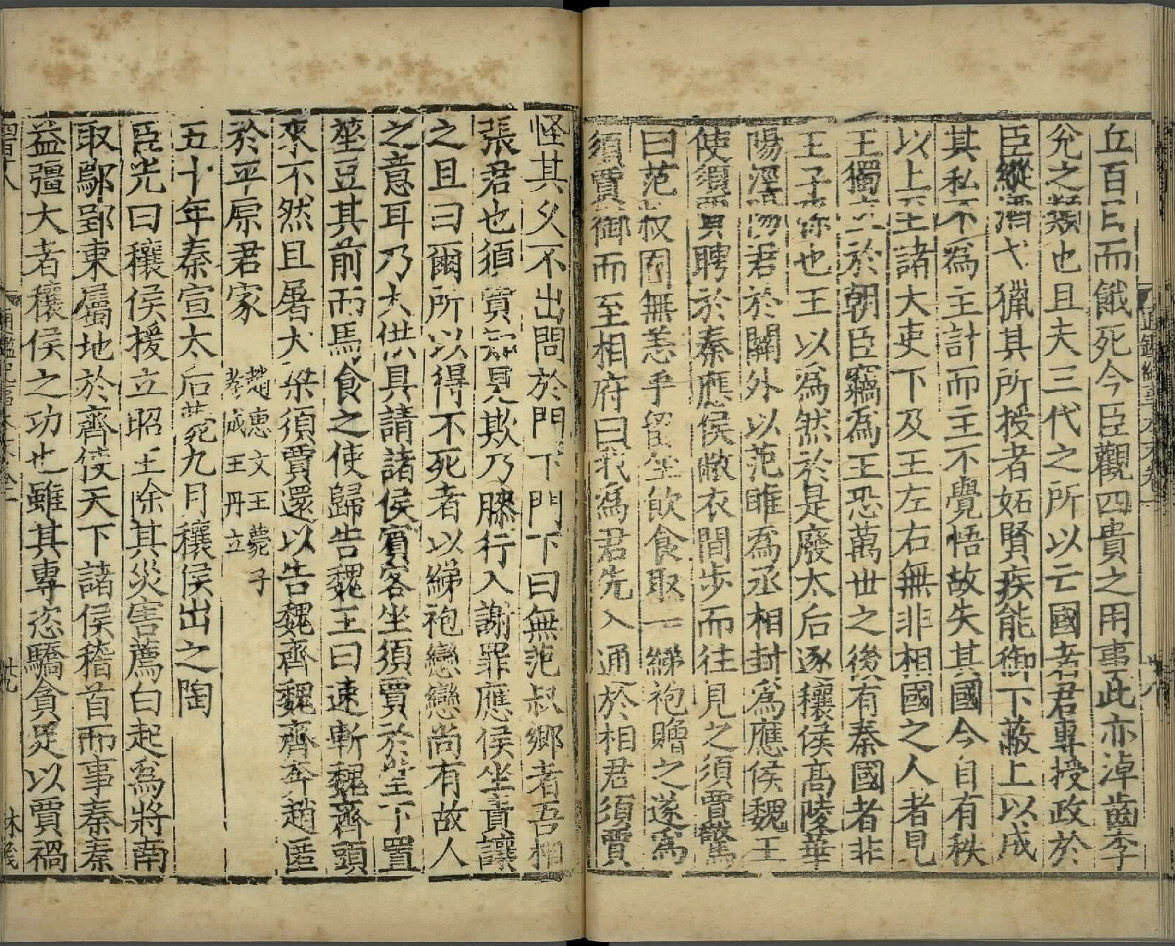 丘百日而餓死今臣觀四貴之用事此亦淖齒李
兊之類也且夫三代之所以亡國者君專授政於
臣縱酒弋獵其所授者妬賢疾能御下蔽上以成
其私不為主計而主不覺悟故失其國今自有秩
以上至諸大吏下及王左右無非相國之人者見
王獨立於朝臣竊為王恐萬世之後有秦國者非
王子孫也王以為然於是廢太后逐穰侯高陵華
陽涇陽君於關外以范雎為丞相封為應侯魏王
使須賈聘於秦應侯敝衣間步而往見之須賈驚
曰范叔固無恙乎留坐飲食取一綈袍贈之遂為
須賈御而至相府曰我為君先入通於相君須賈
怪其久不出問於門下門下曰無范叔鄉者吾相
張君也須賈知見欺乃膝行入謝罪應侯坐責讓
之且曰爾所以得不死者以綈袍戀戀尚有故人
之意耳乃大供具請諸侯賓客坐須賈於堂下置
莝豆其前而馬食之使歸告魏王曰速斬魏齊頭
來不然且屠大梁須賈還以告魏齊魏齊奔趙匿
於平原君家 趙惠文王薨子孝成王丹立
五十年秦宣太后薨九月穰侯出之陶
臣光曰穰侯援立昭王除其災害薦白起為將南
取鄢郢東屬地於齊使天下諸侯稽首而事秦秦
益彊大者穰侯之功也雖其專恣驕貪足以賈禍